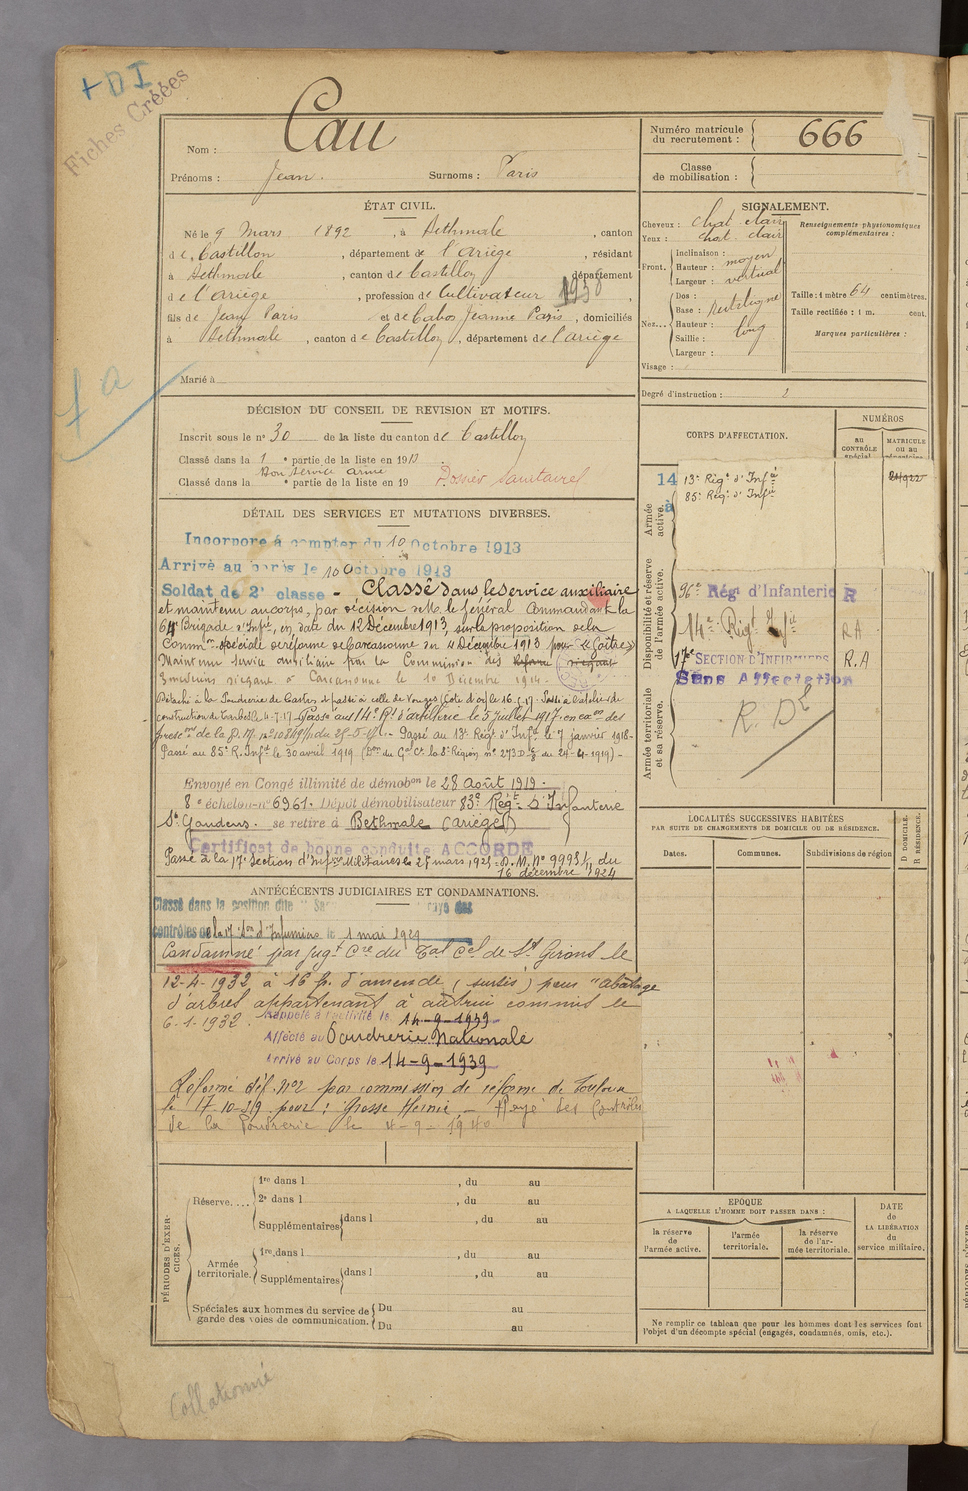 + DI
Fiches Créées
Nom : Cau
Prénoms : Jean. Surnoms : Paris
Numéro matricule du recrutement : 666
Classe de mobilisation :
ÉTAT CIVIL.
Né le 9 Mars 1892, à Bethmale, canton
de Castillon, département de l'Ariège, résidant
à Bethmale, canton de Castillon, département
de l'Ariège, profession de Cultivateur 1938,
fils de Jean Paris et de Cabos Jeanne Paris, domiciliés
à Bethmale, canton de Castillon, département de l'Ariège
Marié à
SIGNALEMENT.
Cheveux : chat. clair
Yeux : chat. clair
Front. Inclinaison : moyen
Hauteur : vertical
Largeur :
Nez... Dos : rectiligne
Base :
Hauteur : long
Saillie :
Largeur :
Visage :
Renseignements physionomiques complémentaires :
Taille : 1 mètre 64 centimètres.
Taille rectifiée : 1 m. cent.
Marques particulières :
Degré d'instruction : 2
fa
DÉCISION DU CONSEIL DE REVISION ET MOTIFS.
Inscrit sous le n° 30 de la liste du canton de Castillon
Classé dans la 1e partie de la liste en 1913
Bon service armé
Classé dans la e partie de la liste en 19
Dossier sanitaire
CORPS D'AFFECTATION.
NUMÉROS
au CONTRÔLE spécial
MATRICULE ou au répertoire
Armée active.
14
à
13e Régt d'Infie
85e Régt d'Infie
24922
Disponibilité et réserve de l'armée active.
96e Régt d'Infanterie R
14e Régt Infie RA
17e SECTION D'INFIRMIERS R.A
Sans Affectation
Armée territoriale et sa réserve.
R. Df
DÉTAIL DES SERVICES ET MUTATIONS DIVERSES.
Incorporé à compter du 10 Octobre 1913
Arrivé au corps le 10 Octobre 1913
Soldat de 2e classe - Classé dans le service auxiliaire
et maintenu au corps, par décision de M. le général Commandant la
64e Brigade d'Infie, en date du 12 Décembre 1913, sur la proposition de la
Common spéciale de réforme de Carcassonne du 4 Décembre 1913 pour (Goître)
Maintenu service auxiliaire par la Commission des Réforme
3 médecins siégeant à Carcassonne le 10 Décembre 1914.
Détaché à la Poudrerie de Castres et passé à celle de Vonges (Côte d'or) le 16-5-17. Passé à l'atelier de
construction de Tarbes le 4-7-17. Passé au 14e Rt d'artillerie le 5 juillet 1917 en con des
presc.ons de la D. M. n° 10849 du 25-5-17. Passé au 13e Régt d'Infie le 7 janvier 1918-
Passé au 85e R. Infie le 30 avril 1919 (Don du Gal Ct la 8e Région n° 273 D. du 24-4-1919) -
Envoyé en Congé illimité de démobon le 28 août 1919.
8e échelon n° 6961. Dépôt démobilisateur 83e Régt d'Infanterie
St Gaudens. se retire à Bethmale (Ariège)
Certificat de bonne conduite ACCORDÉ
Passé à la 17e Section d'Infiers Militaires le 27 mars 1925 - D.M. N° 9993 du
16 décembre 1924
LOCALITÉS SUCCESSIVES HABITÉES
PAR SUITE DE CHANGEMENTS DE DOMICILE OU DE RÉSIDENCE.
D DOMICILE. R RÉSIDENCE.
Dates.
Communes.
Subdivisions de région
ANTÉCÉDENTS JUDICIAIRES ET CONDAMNATIONS.
Classé dans la position dite "Sa rayé des
contrôles de la 17e Son d'Infirmiers le 1 mai 1929
Condamné par Jugt Cre du Tal Cel de St Girons le
12-4-1932 à 16 fr. d'amende (sursis) pour "abatage
d'arbres appartenant à autrui commis le
6-1-1932.
Rappelé à l'activité le 14-9-1939
Affecté au Poudrerie Nationale
Arrivé au Corps le 14-9-1939
Réformé déf. N°2 par commission de réforme de Toulouse
le 17-10-39 pour : Grosse Hernie - Rayé des Contrôles
de la Poudrerie le 4-9-1940
PÉRIODES D'EXERCICES.
Réserve.... 1re dans l , du au
2e dans l , du au
Supplémentaires dans l , du au
Armée territoriale. 1re dans l , du au
Supplémentaires dans l , du au
Spéciales aux hommes du service de garde des voies de communication. Du au
Du au
ÉPOQUE
A LAQUELLE L'HOMME DOIT PASSER DANS :
la réserve de l'armée active.
l'armée territoriale.
la réserve de l'armée territoriale.
DATE de LA LIBÉRATION du service militaire.
Ne remplir ce tableau que pour les hommes dont les services font
l'objet d'un décompte spécial (engagés, condamnés, omis, etc.).
Collationné